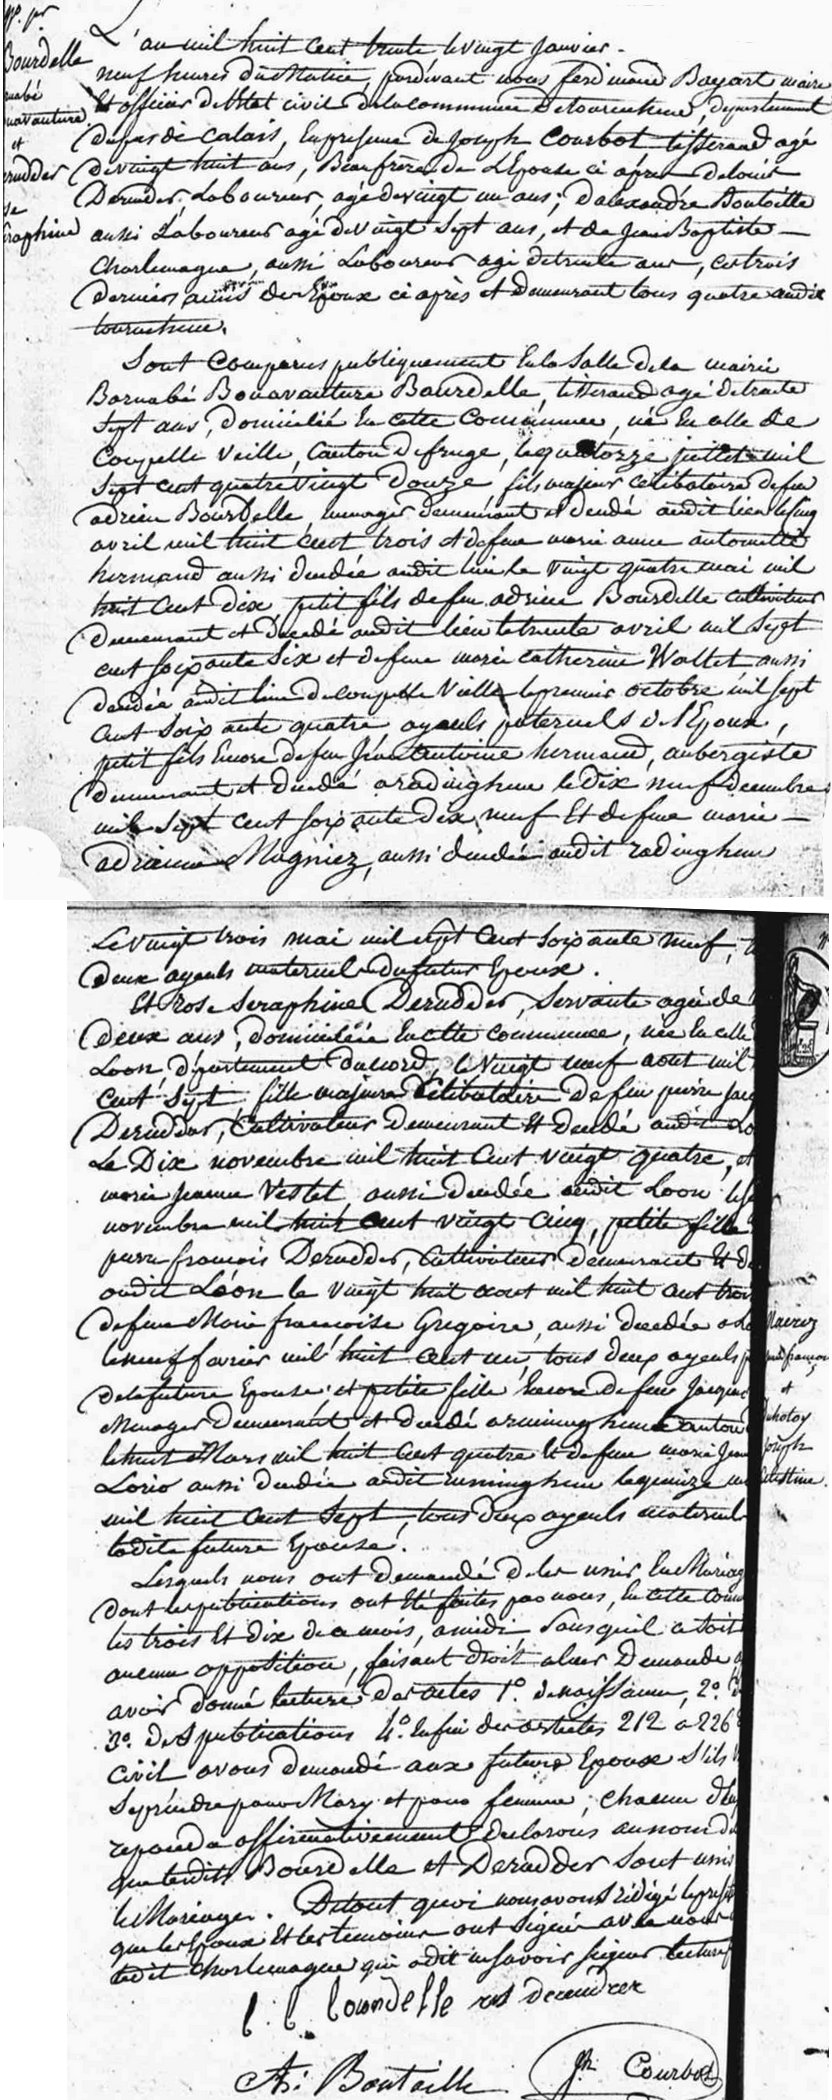 L'an mil huit cent trente le vingt janvier
neuf heures du Matin, pardevant nous ferdinand Bayart maire
Et officier de l'état civil de la commune de tournehem, département
du pas de calais, En presence de Joseph Courbot, tisserand agé
de vingt huit ans, Beaufrère de L'Epouse ci après de louis
Derudder, Laboureur, agé de vingt un ans; d'alexandre Boutoille
aussi Laboureur agé de vingt sept ans, et de Jean Baptiste
Charlemagne, aussi Laboureur agé de trente ans, ces trois
derniers amis des Epoux ci après et demeurant tous quatre audit
tournehem.
Sont comparus publiquement En la Salle de la mairie
Barnabé Bonavanture Bourdelle, tisserand agé de trente
sept ans, domicilié En cette Commune, né En celle de
Coupelle Vieille, Canton de fruge, le quatorze juillet mil
sept cent quatre Vingt Douze fils majeur célibataire de feu
adrien Bourdelle menager demeurant et décédé audit lieu le cinq
avril mil huit cent trois et de feue marie anne antoinette
hermand aussi décédée audit lieu le Vingt quatre mai mil
huit cent dix petit fils de feu adrien Bourdelle cultivateur
demeurant et Décédé audit lieu le trente avril mil sept
cent soixante Six et de feue marie catherine Wallet aussi
décédée audit lieu de coupelle Vielle le premier octobre mil sept
cent soixante quatre ayeuls paternels de l'Epoux,
petit fils Encore de feu Jean antoine hermand, aubergiste
demeurant et décédé a radinghem le Dix neuf decembre
mil sept cent soixante dix neuf Et de feue marie
adrienne Magniez, aussi décédée audit radinghem
Le vingt trois mai mil sept cent soixante neuf,
deux ayeuls maternels du futur Epoux.
Et Rose Seraphine Derudder, Servante agée de
deux ans, domiciliée En cette commune, née En celle
Loon département du nord, le Vingt neuf aout mil
cent sept fille majeure Célibataire De feu pierre
Derudder, Cultivateur demeurant Et décédé audit
Le Dix novembre mil huit cent vingt quatre,
marie jeanne Vestel aussi décédée audit Loon
novembre mil huit cent vingt cinq, petite fille
pierre françois Derudder, Cultivateur demeurant Et
audit Léon le vingt huit aout mil huit cent trois
de feue Marie françoise Gregoire, aussi décédée a
le neuf fevrier mil huit cent un, tous deux ayeuls
de la future Epouse; et petite fille Encore de feu Jacques
Menager demeurant et décédé a ruminghem canton
le huit Mars mil huit cent quatre Et de feue marie Jeanne
Lorio aussi décédée audit ruminghem le quinze
mil huit cent Sept, tous deux ayeuls maternels
ladite future Epouse.
Lesquels nous ont demandé de les unir En Mariage
dont les publications ont été faites par nous, En cette
les trois Et dix de ce mois, a midi, Sans qu'il a soit
aucune opposition, faisant droit a leur Demande
avoir donné lecture des actes 1º. de naissance, 2º.
3º. des publications 4º. Enfin des articles 212 a 226
Civil avons demandé aux futurs Epoux s'ils
se prendre pour Mary et pour femme; chacun d'
repondu affirmativement, declarons au nom
que lesdits Bourdelle et Derudder sont unis
le Mariage. De tout quoi nous avons rédigé le
que les Epoux Et les temoins ont signé avec nous
ledit Charlemagne qui a dit ne savoir signer
b. b. bourdelle ros derudder
Al. Boutoille Jh Courbot
Bourdelle
Bonavanture
et
Derudder
Seraphine
Mairez
françois
et
Joseph
Celestine